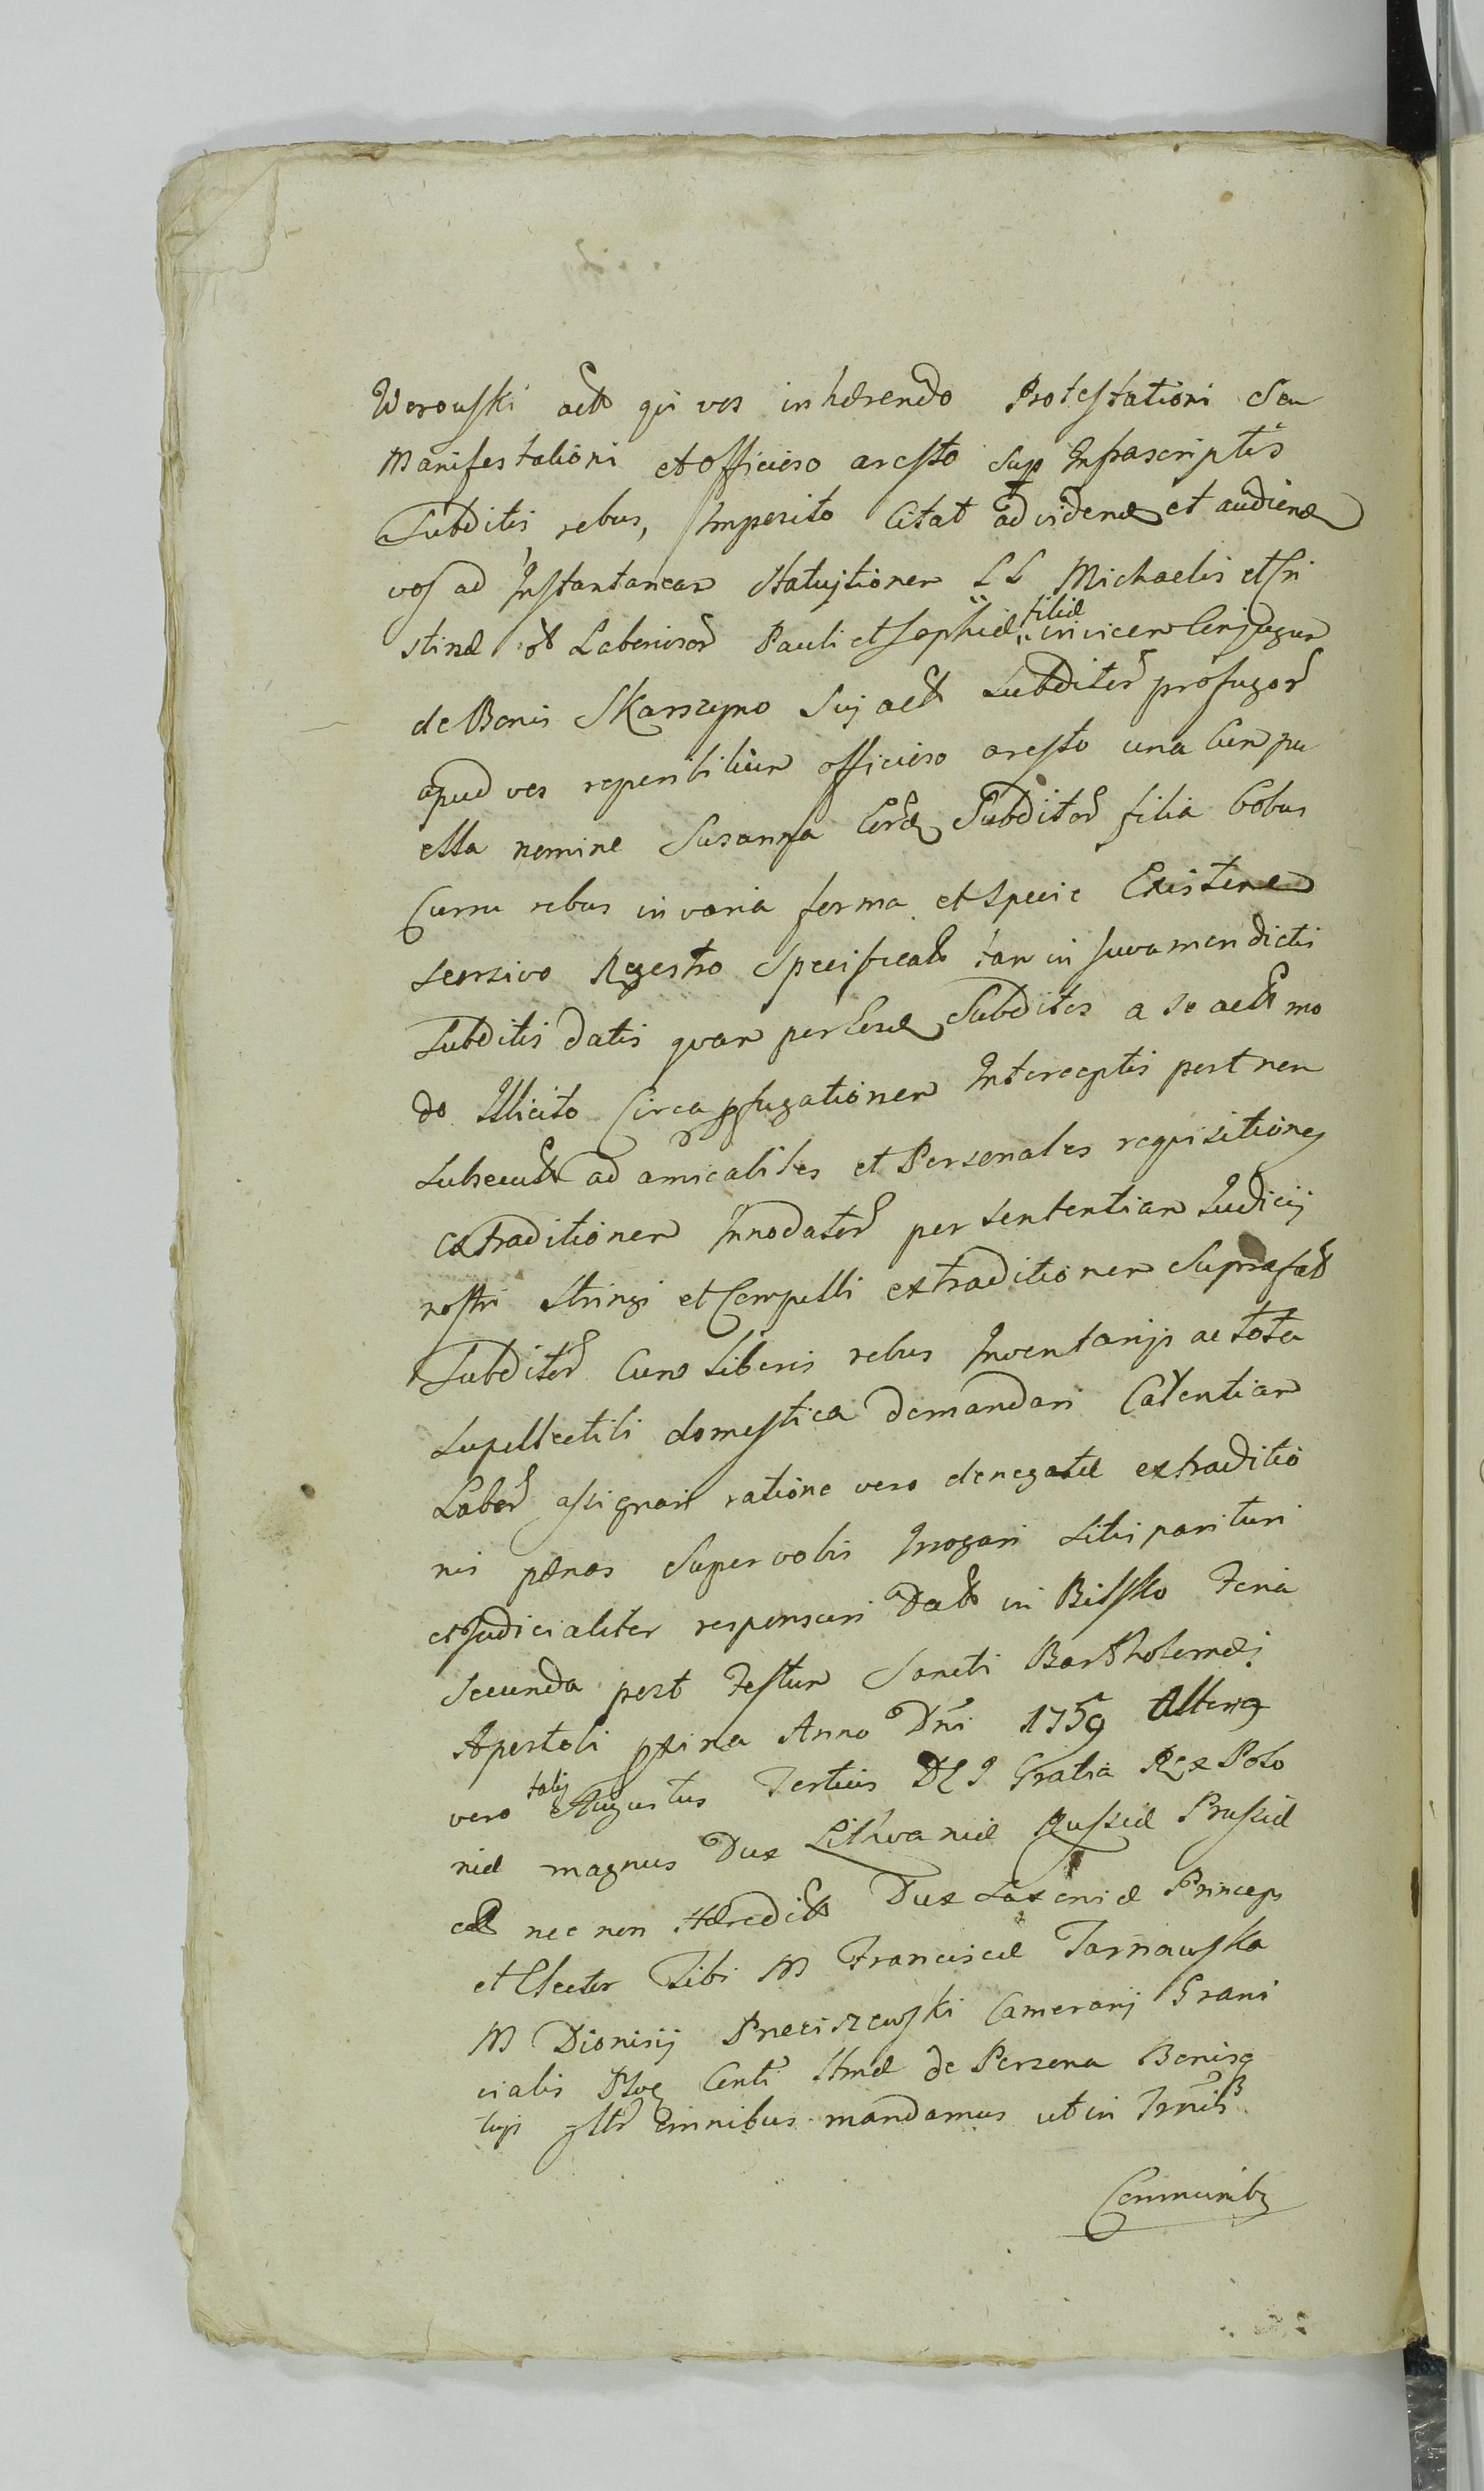 Worowski act qui vos inhærendo Protestationi Seu
Manifestationi et officioso aresto sup Infrascriptis
Subditis rebus, Imposito Citat ad videnđ et audienđ
vos ad Instantaneam Statuitionem LL Michaelis et Cri
stinæ et Laboriosor Pauli et Sophiæ filiæ invicem Conjugum
de Bonis Skarszyno Sui act Subditor profugor
apud vos reperibilium officioso aresto una Cum pu
ella nomine Susanna Eord Subditor filia bobus
Curru rebus in varia forma et specie Existend
seorsivo Regestro Specificat tam in Juvamen dictis
Subditis datis quam per Eosd Subditos a se act mo
do Illicito Circa profugationem Interceptis post non
subsecut ad amicabiles et Personales requisitiones
extraditionem Innodator per sententiam Judicij
nostri Stringi et Compelli extraditionem Suprafat
Subditor Cum Liberis rebus Inventarijs ac tota
supellectili domestica demandari Carentiam
Labor assignari ratione vero denegatæ extraditio
nis pænas Super vobis Irrogari Litis parituri
et Judicialiter responsuri Dat in Bilsko Feria
Secunda post Festum Sancti Bartholomæi
Apostoli pxima Anno Dni 1759 Alterius
vero talis Augustus Tertius DEI Gratia Rex Polo
niæ magnus Dux Lithvaniæ Russiæ Prussiæ
nec non Hæredit Dux Saxoniæ Princeps
et Elector Tibi M Franciscæ Tarnowska
M Dionisij Preciszewski Camerarij Grani
cialis Ploc Conti Itmæ de Persona Bonisq
tuis gltr omnibus mandamus ut in Trmis
Communibus